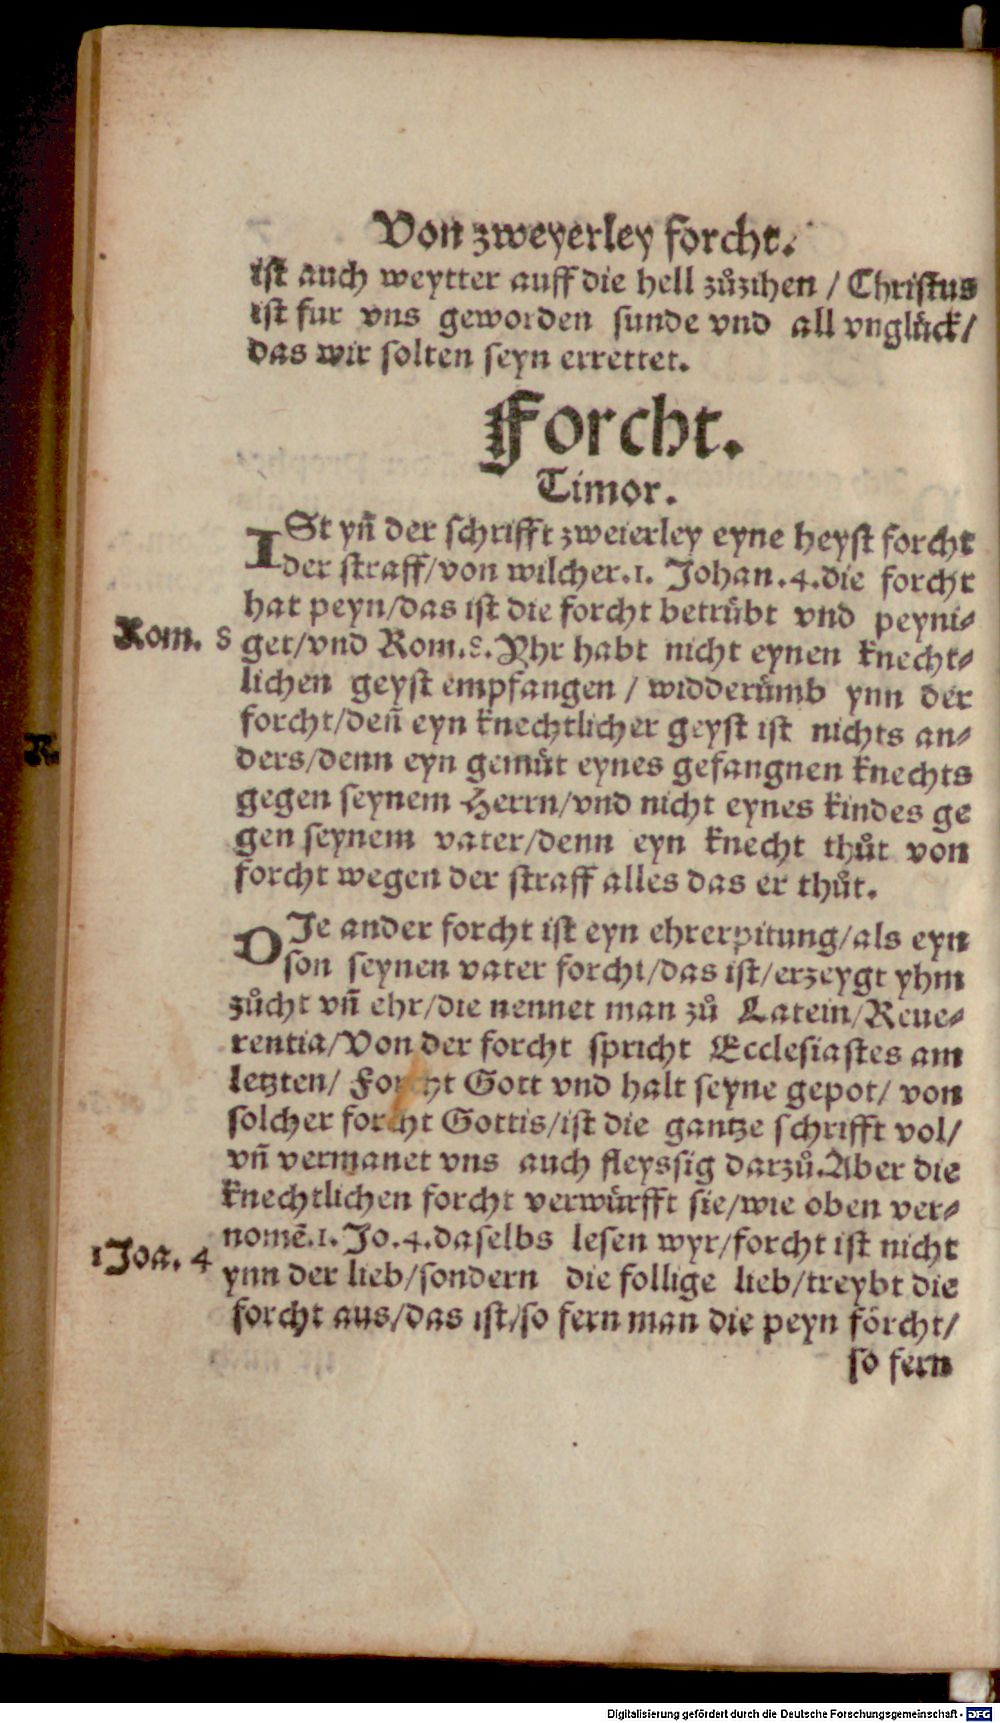 Von zweyerley forcht.
ist auch weytter auff die hell zůzihen / Christus
ist fur vns geworden sunde vnd all vnglück/
das wir solten seyn errettet.
Forcht.
Timor.
ISt yñ der schrifft zweierley eyne heyst forcht
der straff/von wilcher.1. Johan.4.die forcht
hat peyn/das ist die forcht betrübt vnd peyni⸗
Rom. 8 get/vnd Rom.8.Yhr habt nicht eynen knecht⸗
lichen geyst empfangen / widderümb ynn der
forcht/deñ eyn knechtlicher geyst ist nichts an⸗
ders/denn eyn gemüt eynes gefangnen knechts
gegen seynem Herrn/vnd nicht eynes kindes ge
gen seynem vater/denn eyn knecht thůt von
forcht wegen der straff alles das er thůt.
DIe ander forcht ist eyn ehrerpitung/als eyn
son seynen vater forcht/das ist/erzeygt yhm
zůcht vñ ehr/die nennet man zů Latein/Reue⸗
rentia/Von der forcht spricht Ecclesiastes am
letzten/ Forcht Gott vnd halt seyne gepot/ von
solcher forcht Gottis/ist die gantze schrifft vol/
vñ vermanet vns auch fleyssig darzů.Aber die
knechtlichen forcht verwürfft sie/wie oben ver⸗
nomẽ.1.Jo.4.daselbs lesen wyr/forcht ist nicht
1 Joa. 4 ynn der lieb/sondern die follige lieb/treybt die
forcht aus/das ist/so fern man die peyn förcht/
so fern
R.
Digitalisierung gefördert durch die Deutsche Forschungsgemeinschaft - DFG